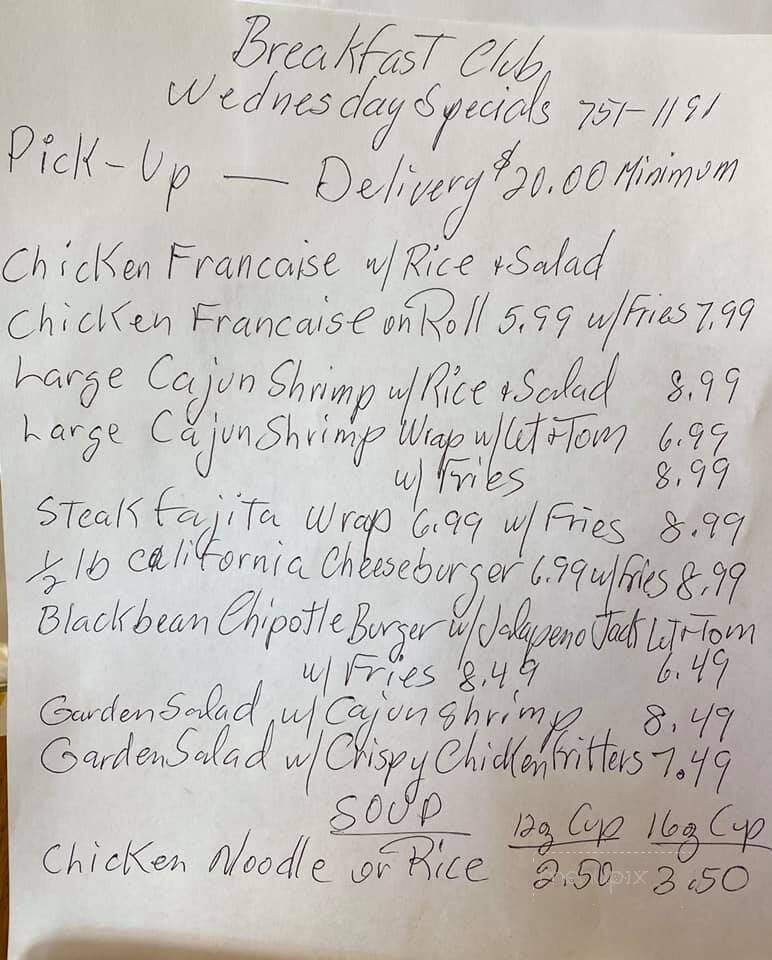 Breakfast Club
Wednesday Specials 751-1191
Pick-Up — Delivery $20.00 Minimum
Chicken Francaise w/ Rice + Salad
Chicken Francaise on Roll 5.99 w/Fries 7.99
Large Cajun Shrimp w/Rice + Salad 8.99
Large Cajun Shrimp Wrap w/Let + Tom 6.99
w/ Fries 8.99
Steak Fajita Wrap 6.99 w/ Fries 8.99
1/2 lb California Cheeseburger 6.99 w/fries 8.99
Blackbean Chipotle Burger w/Jalapeno Jack Let + Tom
w/ Fries 8.49 6.49
Garden Salad w/ Cajun Shrimp 8.49
Garden Salad w/ Crispy Chicken Fritters 7.49
SOUP 12oz Cup 16oz Cup
Chicken Noodle or Rice 2.50 3.50